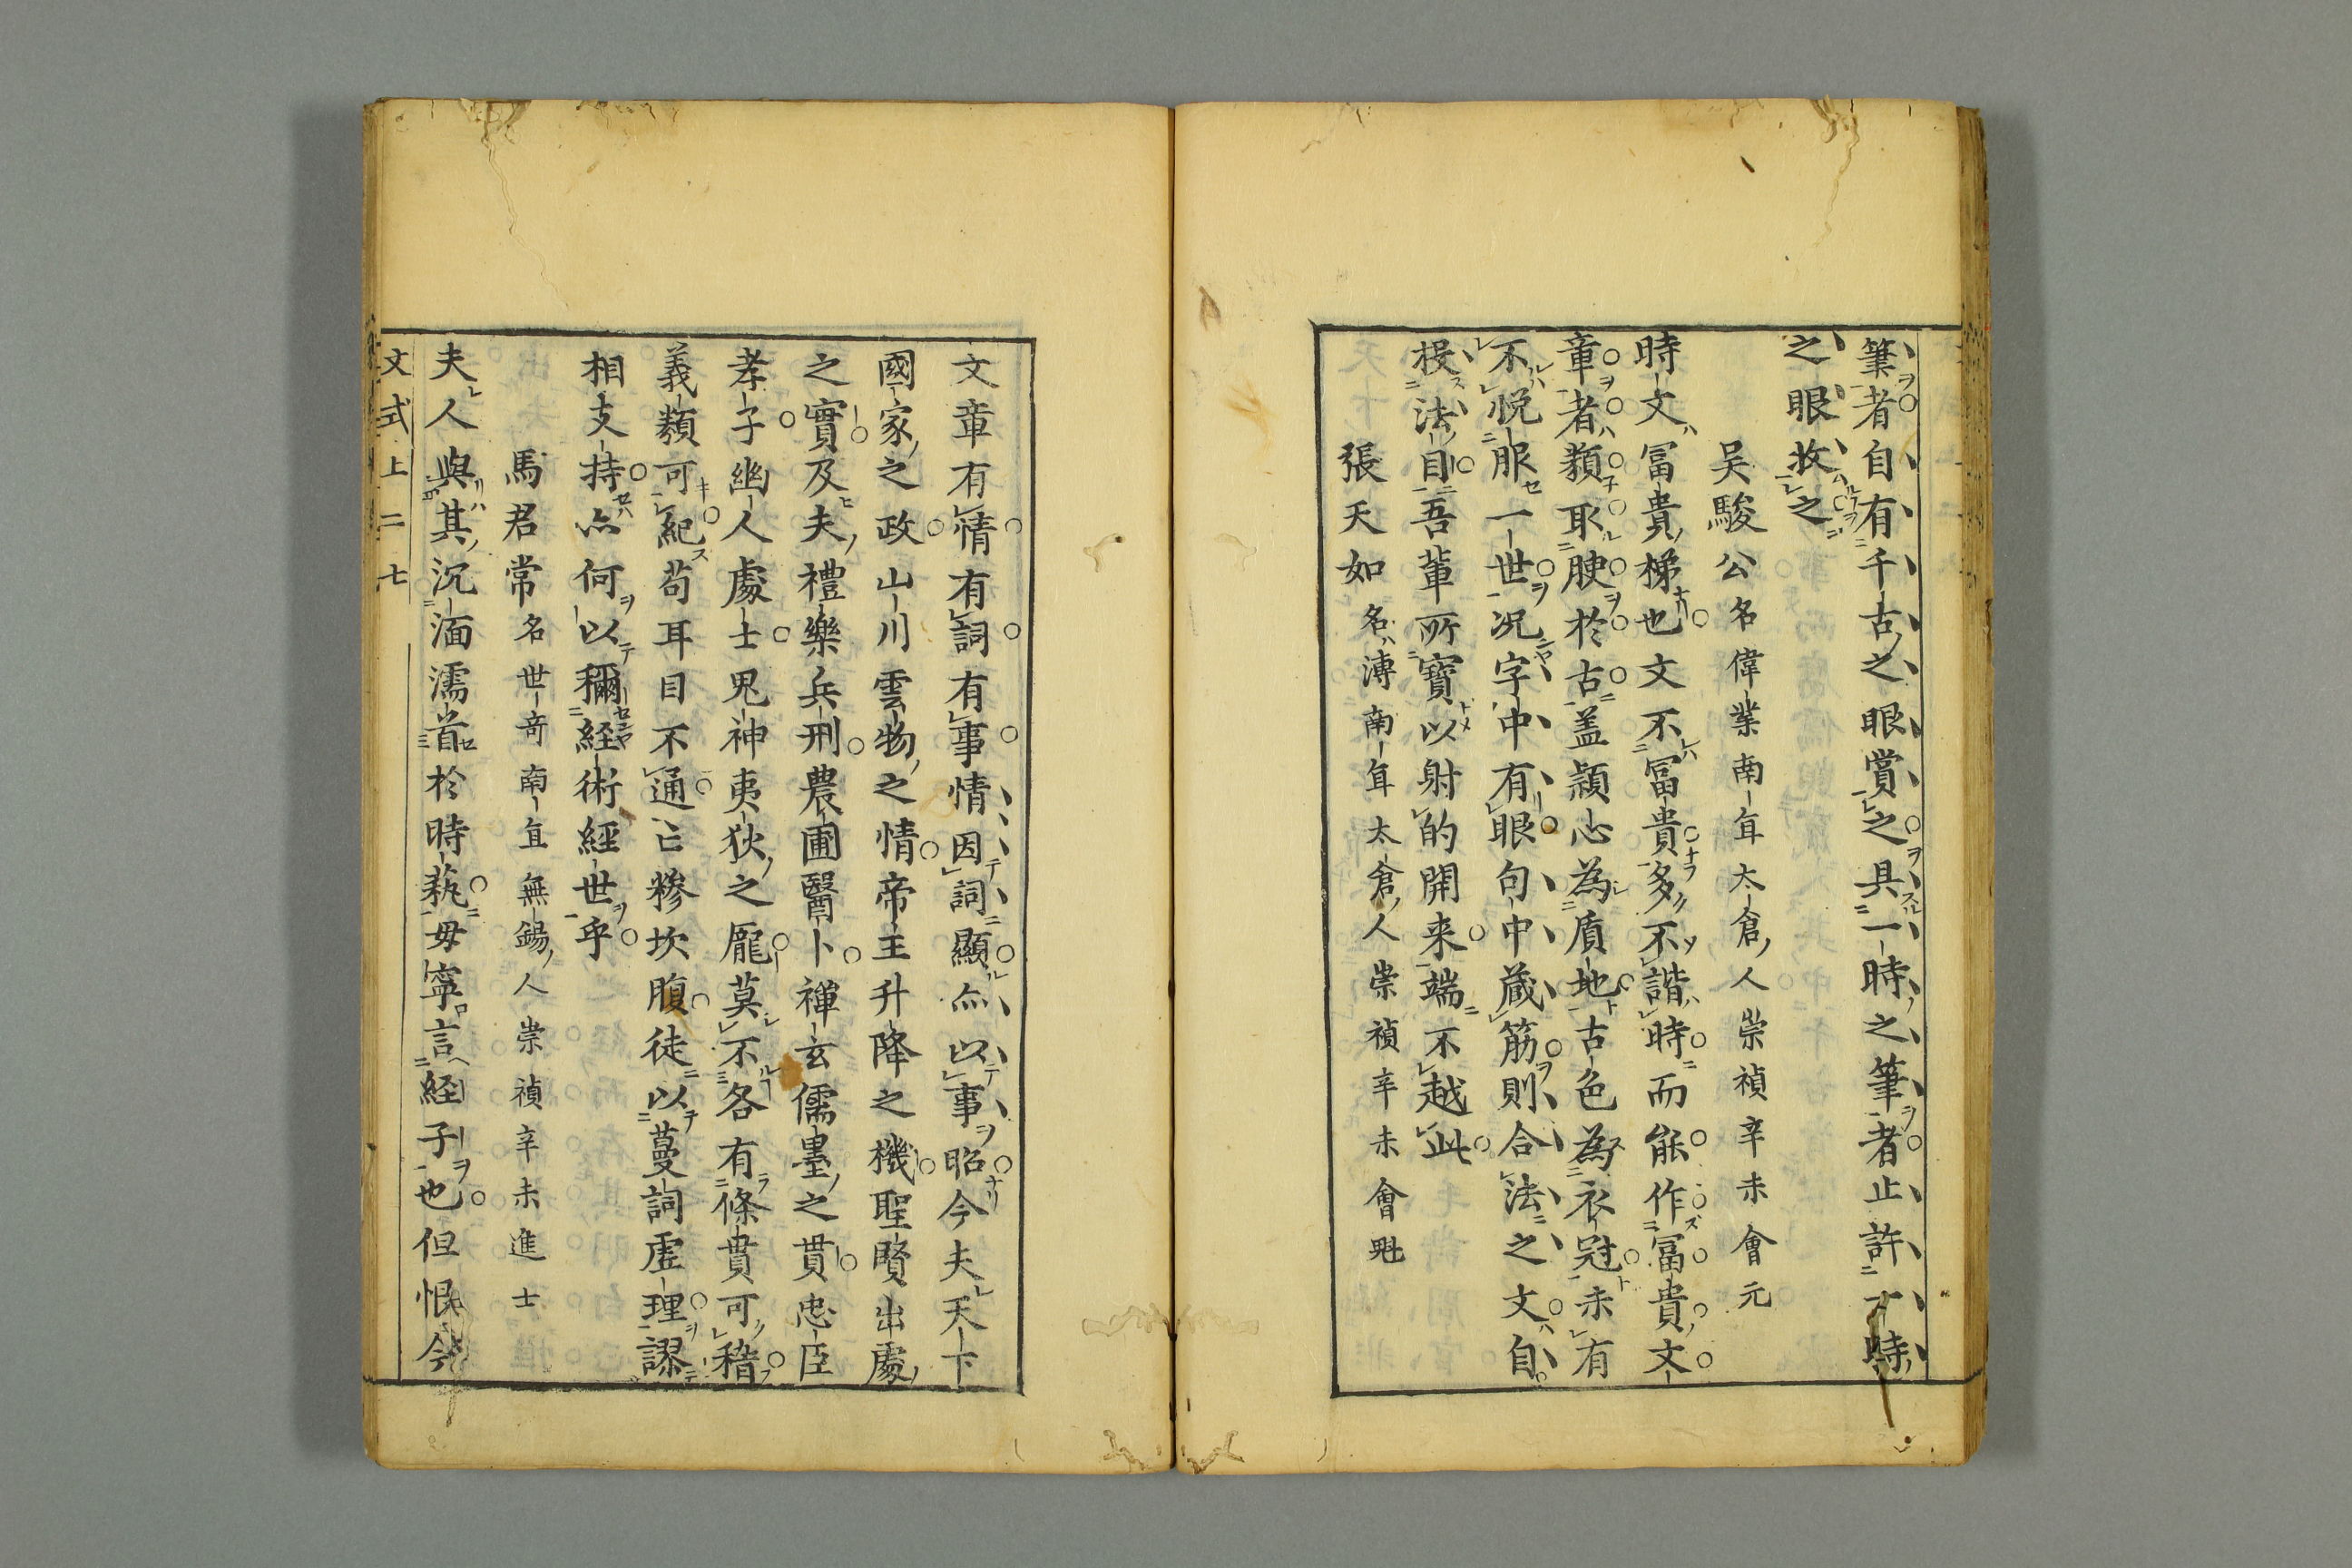 筆者自有千古之眼賞之具一時之筆者止許一時
之眼收之
吴駿公名偉業南直太倉人崇禎辛未會元
時文冨貴梯也文不冨貴多不諧時而能作冨貴文
章者類取腴於古盖穎心為質地古色為衣冠未有
不悦服一世况字中有眼句中蔵筋則合法之文自
投法目吾輩所寶以射的開来端不越此
張天如名溥南直太倉人崇禎辛未會魁
文章有情有詞有事情因詞顯亦以事昭今夫天下
國家之政山川雲物之情帝王升降之機聖賢出處
之實及夫禮樂兵刑農圃醫卜禅玄儒墨之貫忠臣
孝子幽人處士鬼神夷狄之龐莫不各有條貫可稽
義類可紀苟耳目不通亡糁坎腹徒以蔓詞虚理謬
相支持亦何以稱経術經世乎
馬君常名世奇南直無錫人崇禎辛未進士
夫人與其沉湎濡首於時蓺毋寧言経子也但恨今
文式上二七